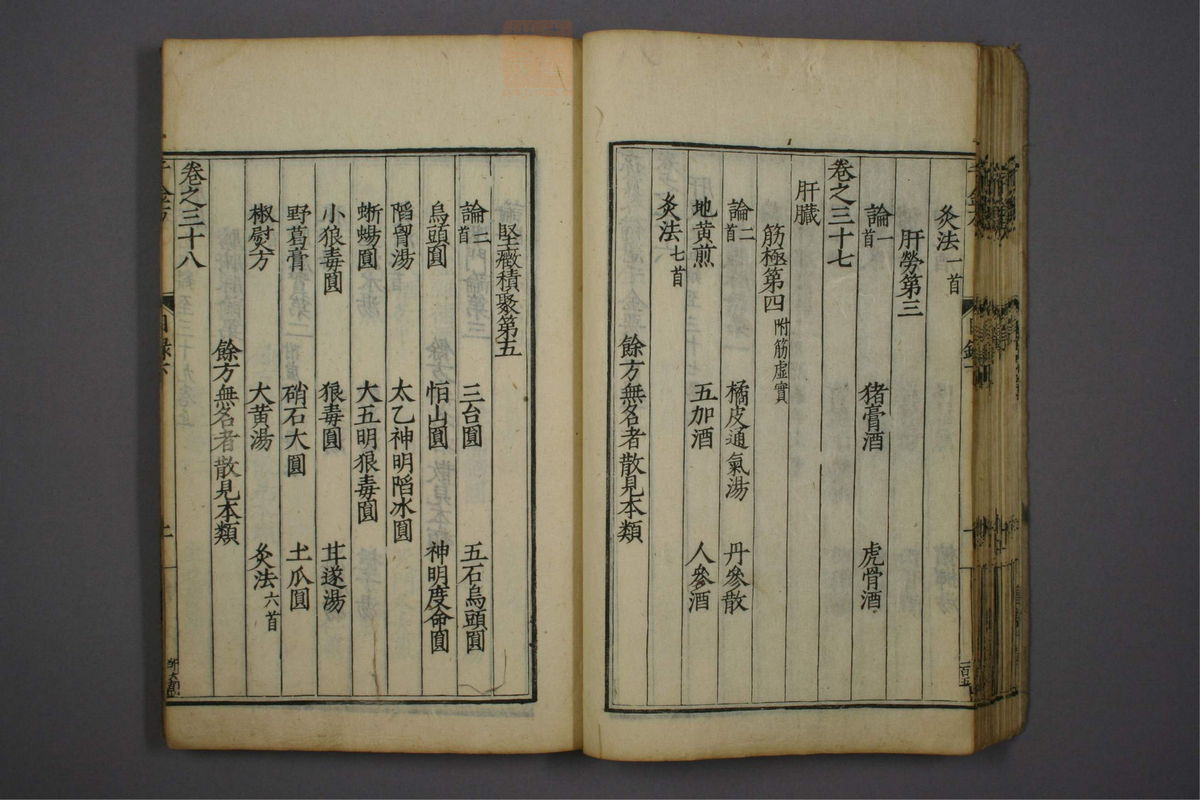 灸法一首
肝勞第三
論一首 猪膏酒 虎骨酒
卷之三十七
肝臟
筋極第四 附筋虛實
論二首 橘皮通氣湯 丹參散
地黃煎 五加酒 人參酒
灸法七首
餘方無名者散見本類
堅癥積聚第五
論二首 三台圓 五石烏頭圓
烏頭圓 恒山圓 神明度命圓
陷胷湯 太乙神明陷冰圓
蜥蜴圓 大五明狼毒圓
小狼毒圓 狼毒圓 甘遂湯
野葛膏 硝石大圓 土瓜圓
椒熨方 大黃湯 灸法六首
餘方無名者散見本類
卷之三十八